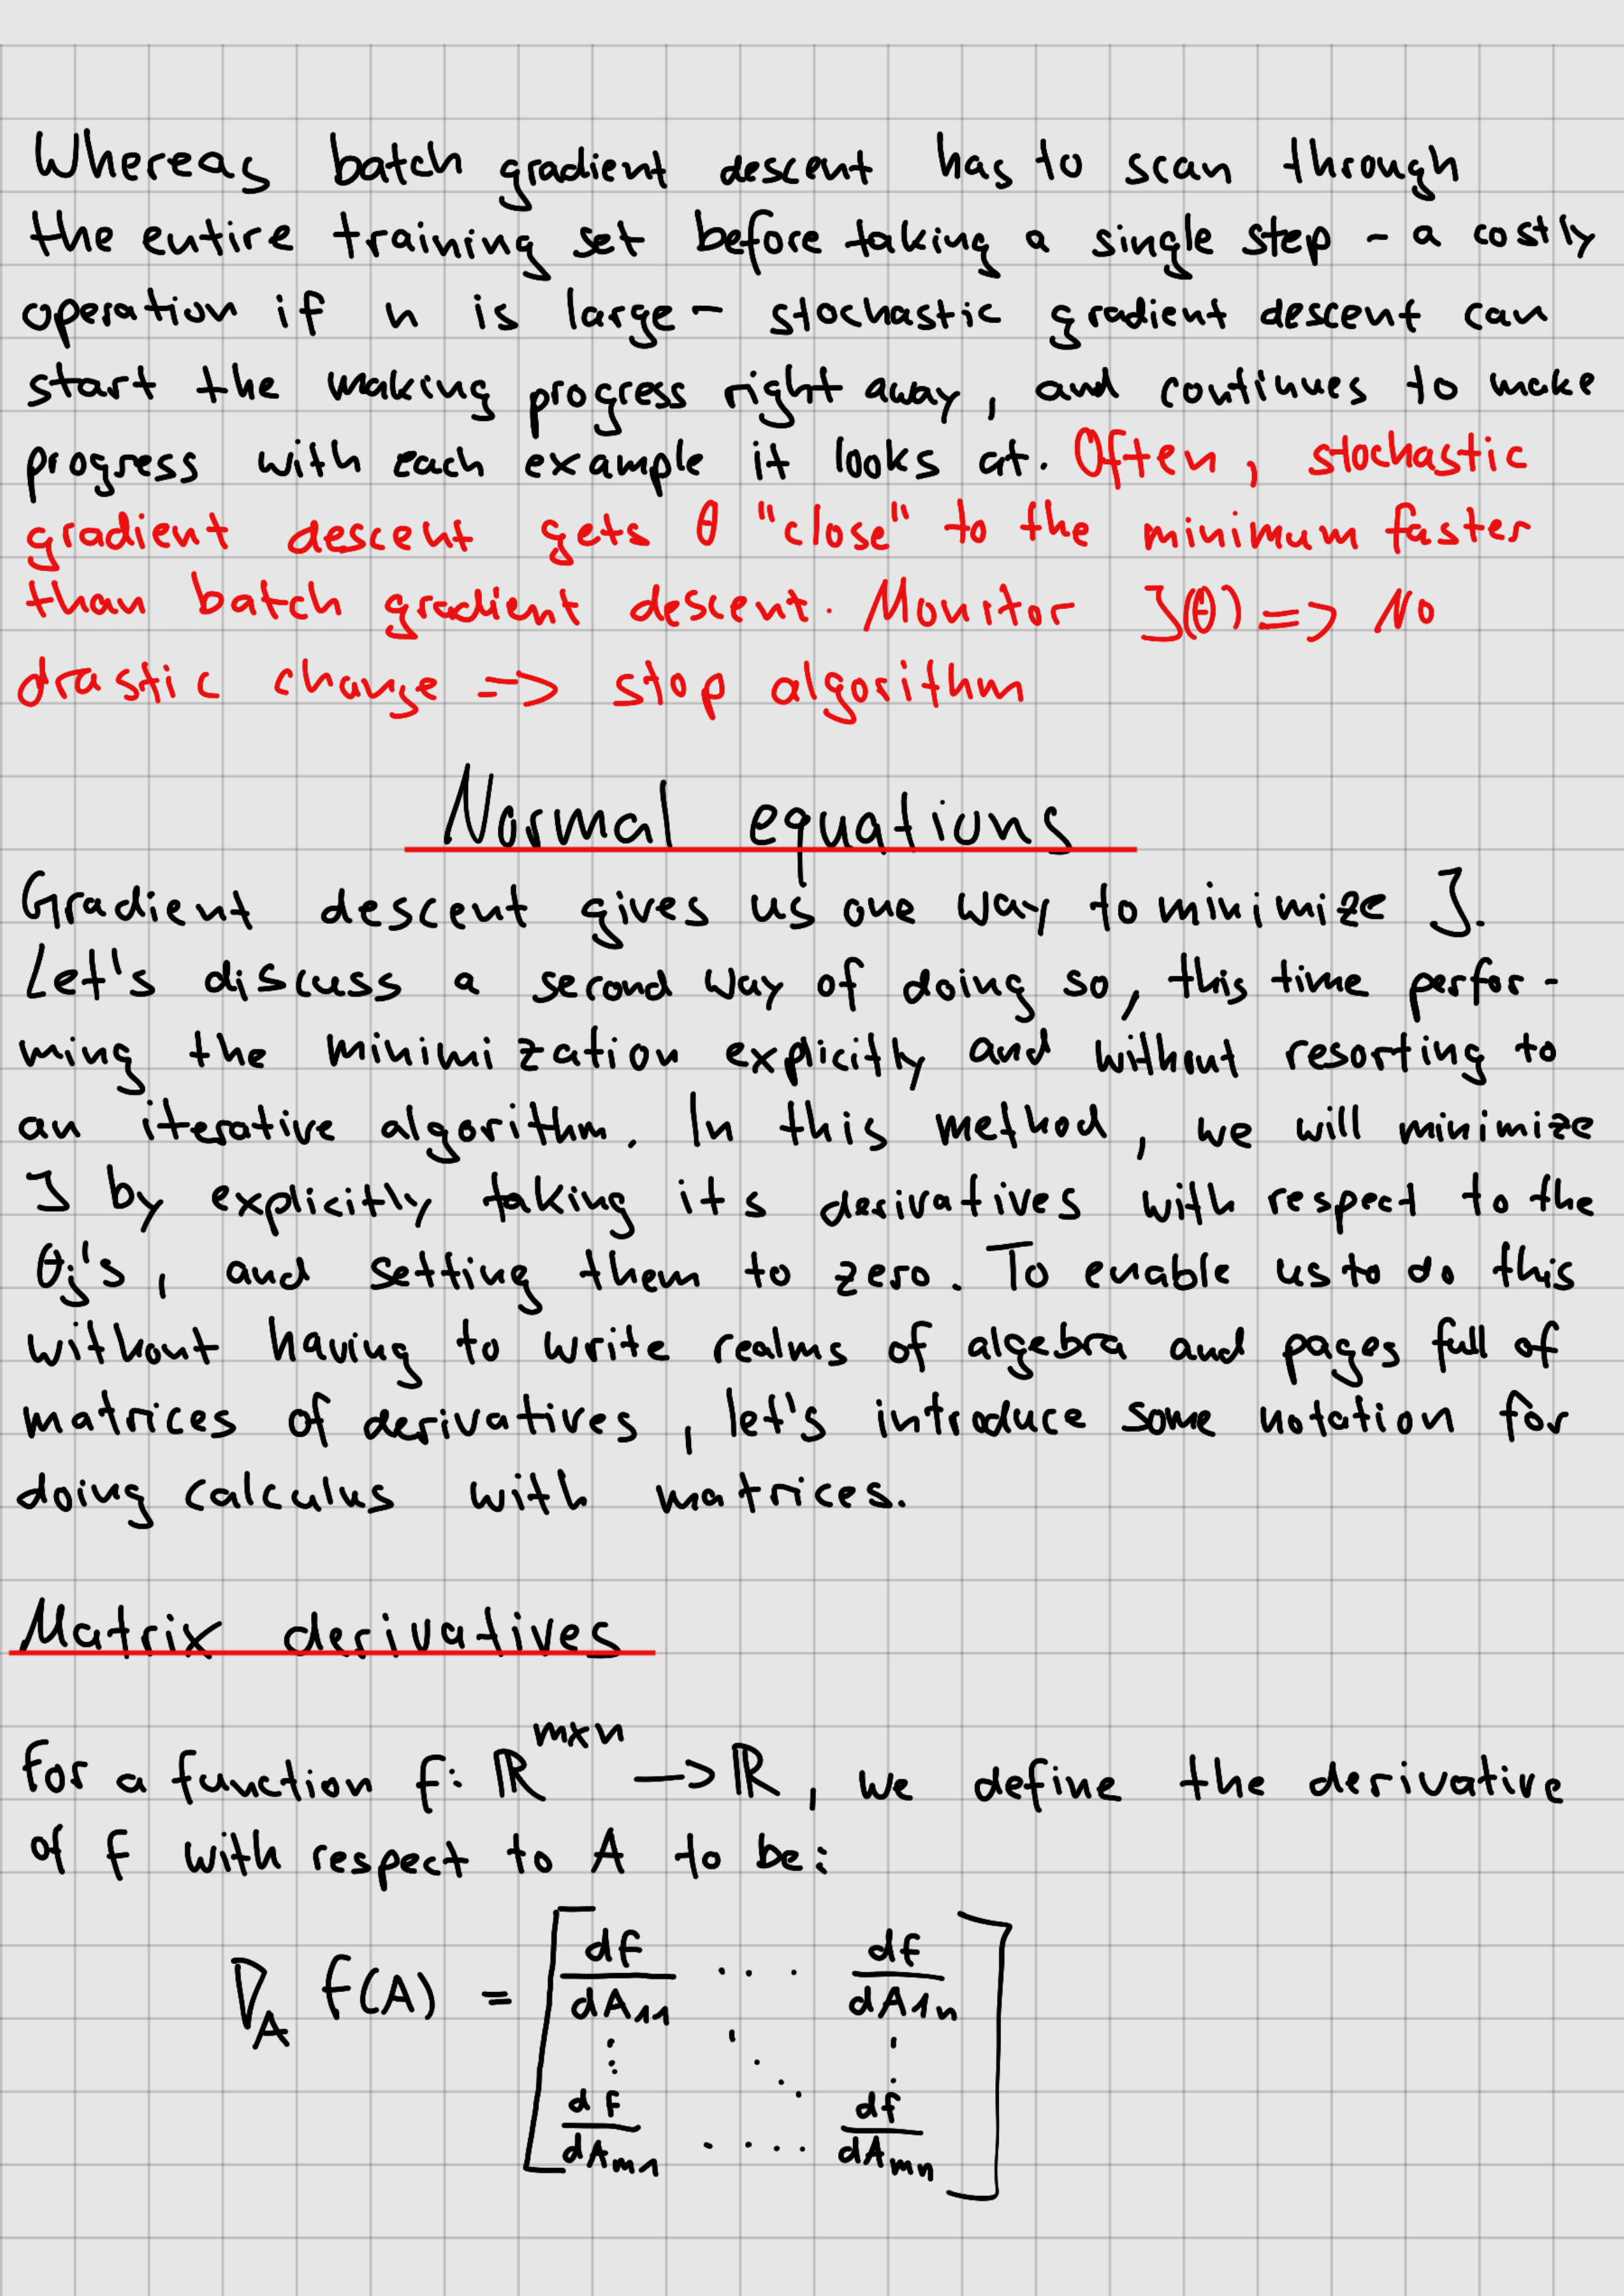 Whereas batch gradient descent has to scan through
the entire training set before taking a single step - a costly
operation if n is large - stochastic gradient descent can
start the making progress right away, and continues to make
progress with each example it looks at. Often, stochastic
gradient descent gets θ "close" to the minimum faster
than batch gradient descent. Monitor J(θ) => No
drastic change => stop algorithm
Normal equations
Gradient descent gives us one way to minimize J.
Let's discuss a second way of doing so, this time perfor-
ming the minimization explicitly and without resorting to
an iterative algorithm. In this method, we will minimize
J by explicitly taking its derivatives with respect to the
θj's, and setting them to zero. To enable us to do this
without having to write realms of algebra and pages full of
matrices of derivatives, let's introduce some notation for
doing calculus with matrices.
Matrix derivatives
For a function f: ℝ^{m×n} -> ℝ, we define the derivative
of f with respect to A to be:
∇_A f(A) = [ df/dA_{11} ... df/dA_{1n}
⋮ ⋱ ⋮
df/dA_{m1} .... df/dA_{mn} ]